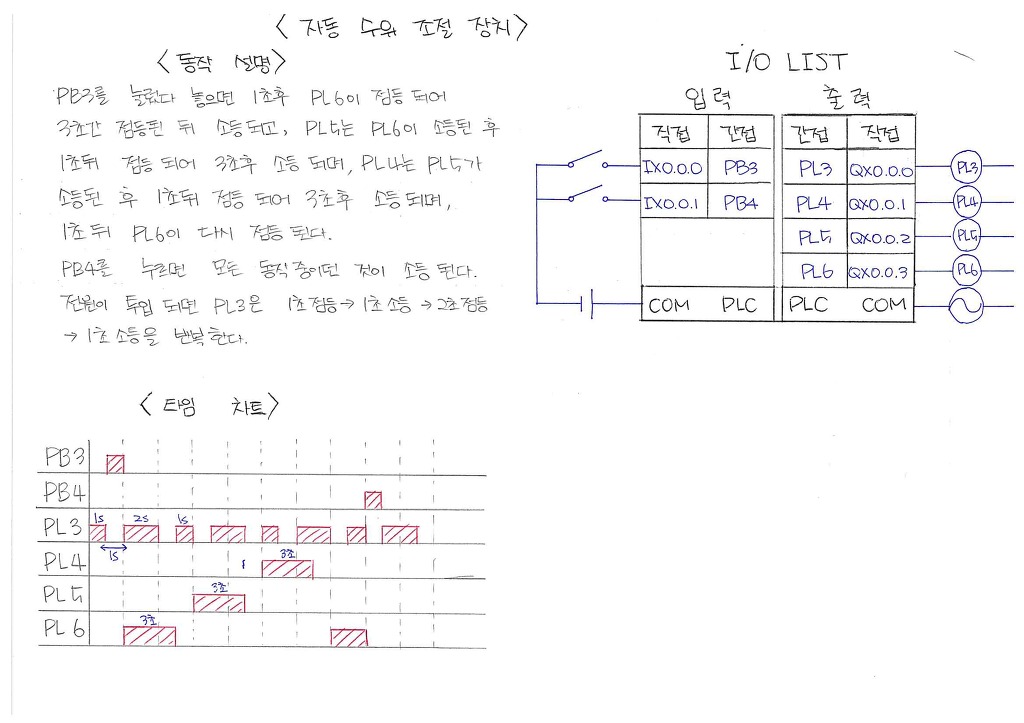 < 자동 수위 조절 장치 >
< 동작 설명 >
PB3를 눌렀다 놓으면 1초후 PL6이 점등 되어
3초간 점등된 뒤 소등되고, PL5는 PL6이 소등된 후
1초뒤 점등 되어 3초후 소등 되며, PL4는 PL5가
소등된 후 1초뒤 점등 되어 3초후 소등되며,
1초 뒤 PL6이 다시 점등 된다.
PB4를 누르면 모든 동작중이던 것이 소등 된다.
전원이 투입 되면 PL3은 1초점등→1초소등→2초점등
→1초소등을 반복한다.
I/O LIST
입력 출력
직접 간접 간접 직접
IX0.0.0 PB3 PL3 QX0.0.0 PL3
IX0.0.1 PB4 PL4 QX0.0.1 PL4
PL5 QX0.0.2 PL5
PL6 QX0.0.3 PL6
COM PLC PLC COM
< 타임 차트 >
PB3
PB4
PL3 1s 2s 1s
1s
PL4 3초
PL5 3초
PL6 3초